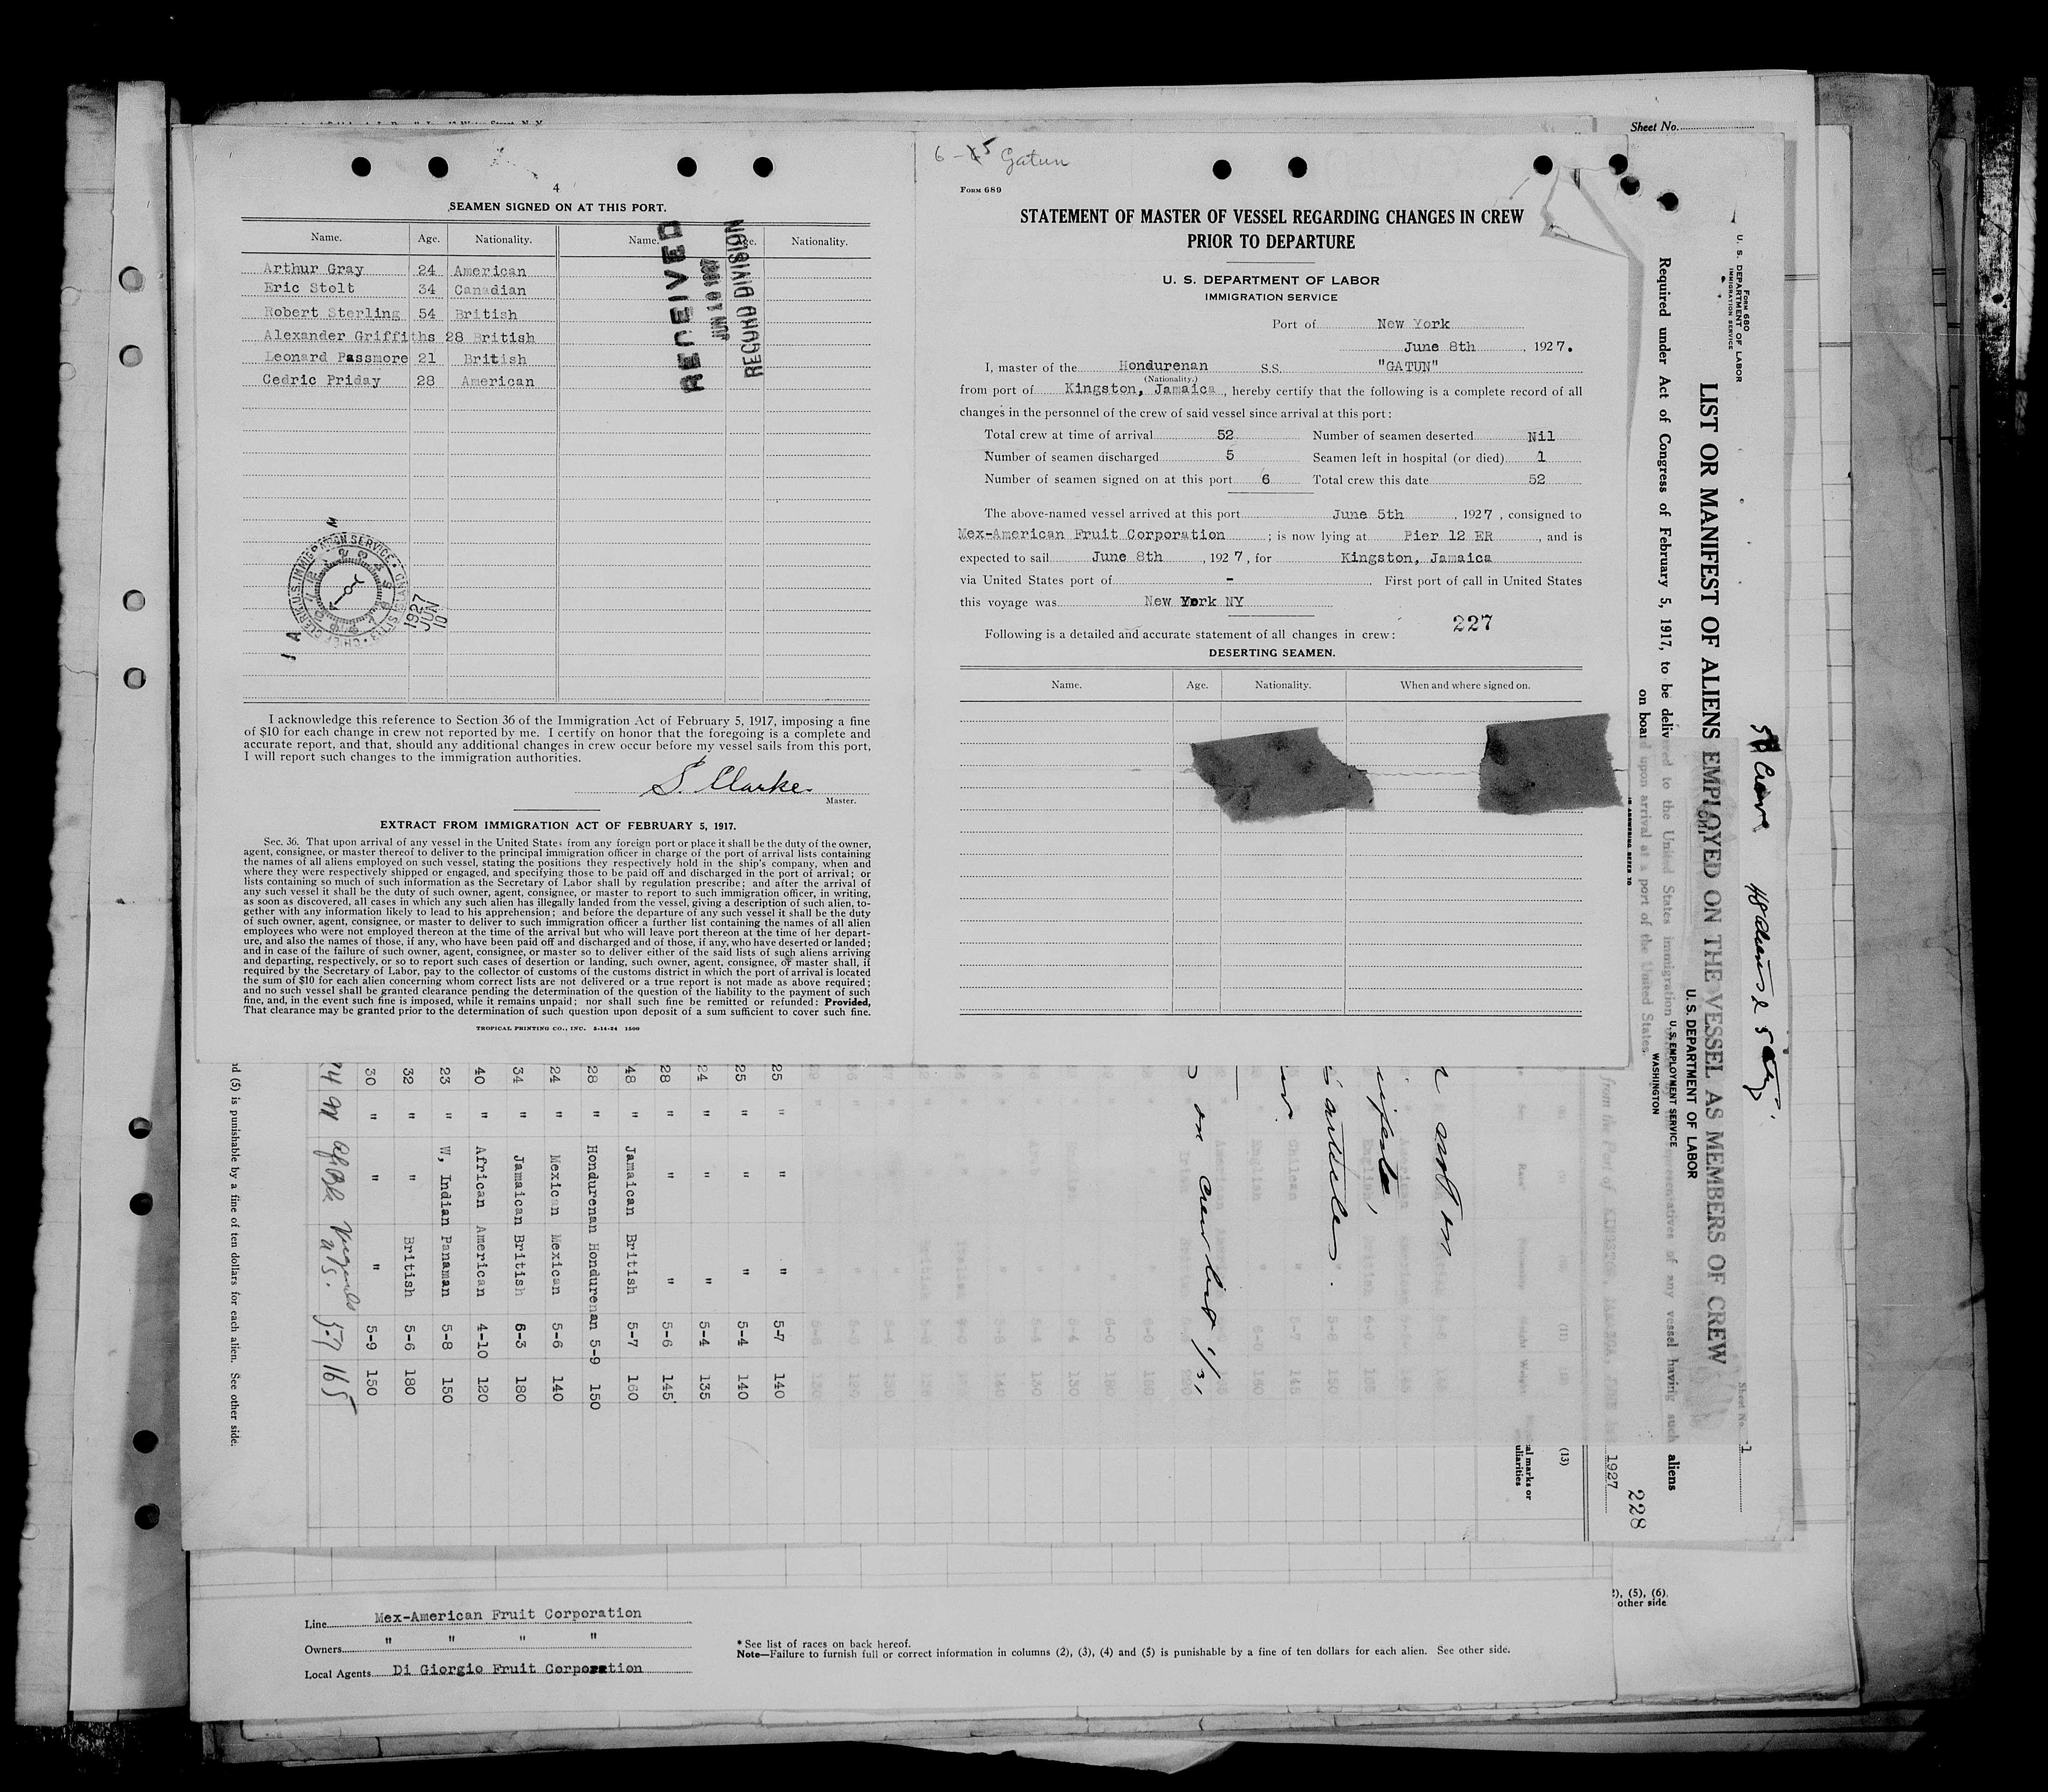 4
SEAMEN SIGNED ON AT THIS PORT.
Name. Age. Nationality. Name. Age. Nationality.
Arthur Gray 24 American
Eric Stolt 34 Canadian
Robert Sterling 54 British
Alexander Griffiths 28 British
Leonard Passmore 21 British
Cedric Priday 28 American
RECEIVED
JUN 10 1927
RECORDS DIVISION
1927
JUN
10
I acknowledge this reference to Section 36 of the Immigration Act of February 5, 1917, imposing a fine
of $10 for each change in crew not reported by me. I certify on honor that the foregoing is a complete and
accurate report, and that, should any additional changes in crew occur before my vessel sails from this port,
I will report such changes to the immigration authorities.
S. Clarke
Master.
EXTRACT FROM IMMIGRATION ACT OF FEBRUARY 5, 1917.
Sec. 36. That upon arrival of any vessel in the United States from any foreign port or place it shall be the duty of the owner,
agent, consignee, or master thereof to deliver to the principal immigration officer in charge of the port of arrival lists containing
the names of all aliens employed on such vessel, stating the positions they respectively hold in the ship's company, when and
where they were respectively shipped or engaged, and specifying those to be paid off and discharged in the port of arrival; or
lists containing so much of such information as the Secretary of Labor shall by regulation prescribe; and after the arrival of
any such vessel it shall be the duty of such owner, agent, consignee, or master to report to such immigration officer, in writing,
as soon as discovered, all cases in which any such alien has illegally landed from the vessel, giving a description of such alien, to-
gether with any information likely to lead to his apprehension; and before the departure of any such vessel it shall be the duty
of such owner, agent, consignee, or master to deliver to such immigration officer a further list containing the names of all alien
employees who were not employed thereon at the time of the arrival but who will leave port thereon at the time of her depart-
ure, and also the names of those, if any, who have been paid off and discharged and of those, if any, who have deserted or landed;
and in case of the failure of such owner, agent, consignee, or master so to deliver either of the said lists of such aliens arriving
and departing, respectively, or so to report such cases of desertion or landing, such owner, agent, consignee, or master shall, if
required by the Secretary of Labor, pay to the collector of customs of the customs district in which the port of arrival is located
the sum of $10 for each alien concerning whom correct lists are not delivered or a true report is not made as above required;
and no such vessel shall be granted clearance pending the determination of the question of the liability to the payment of such
fine, and, in the event such fine is imposed, while it remains unpaid; nor shall such fine be remitted or refunded: Provided,
That clearance may be granted prior to the determination of such question upon deposit of a sum sufficient to cover such fine.
TROPICAL PRINTING CO., INC. 5-14-24 1500
Gatun
FORM 689
STATEMENT OF MASTER OF VESSEL REGARDING CHANGES IN CREW
PRIOR TO DEPARTURE
U. S. DEPARTMENT OF LABOR
IMMIGRATION SERVICE
Port of New York
June 8th, 1927.
I, master of the Hondurenan S.S. "GATUN"
(Nationality.)
from port of Kingston, Jamaica, hereby certify that the following is a complete record of all
changes in the personnel of the crew of said vessel since arrival at this port:
Total crew at time of arrival 52 Number of seamen deserted Nil
Number of seamen discharged 5 Seamen left in hospital (or died) 1
Number of seamen signed on at this port 6 Total crew this date 52
The above-named vessel arrived at this port June 5th, 1927, consigned to
Mex-American Fruit Corporation; is now lying at Pier 12 ER, and is
expected to sail June 8th, 1927, for Kingston, Jamaica
via United States port of - First port of call in United States
this voyage was New York NY
227
Following is a detailed and accurate statement of all changes in crew:
DESERTING SEAMEN.
Name. Age. Nationality. When and where signed on.
Sheet No.
Form 680
U. S. DEPARTMENT OF LABOR
IMMIGRATION SERVICE
LIST OR MANIFEST OF ALIENS EMPLOYED ON THE VESSEL AS MEMBERS OF CREW
Required under Act of Congress of February 5, 1917, to be delivered to the United States immigration representatives of any vessel having such aliens
on board upon arrival at a port of the United States.
U. S. DEPARTMENT OF LABOR
U. S. EMPLOYMENT SERVICE
WASHINGTON
IN ANSWERING REFER TO
Sheet No. 1
from the Port of KINGSTON, JAMAICA, JUNE 1927
228
(13)
on crew list
25 " " " 5-7 140
25 " " " 5-4 140
24 " " " 5-4 135
28 " " " 5-6 145
48 " Jamaican British 5-7 160
28 " Hondurenan Hondurenan 5-9 150
24 " Mexican Mexican 5-6 140
34 " Jamaican British 6-3 180
40 " African American 4-10 120
23 " W, Indian Panaman 5-8 150
32 " " British 5-6 180
30 " " " 5-9 150
5-7 165
(5) is punishable by a fine of ten dollars for each alien. See other side.
(5), (6).
other side
Line Mex-American Fruit Corporation
Owners " " " "
Local Agents Di Giorgio Fruit Corporation
* See list of races on back hereof.
Note—Failure to furnish full or correct information in columns (2), (3), (4) and (5) is punishable by a fine of ten dollars for each alien. See other side.